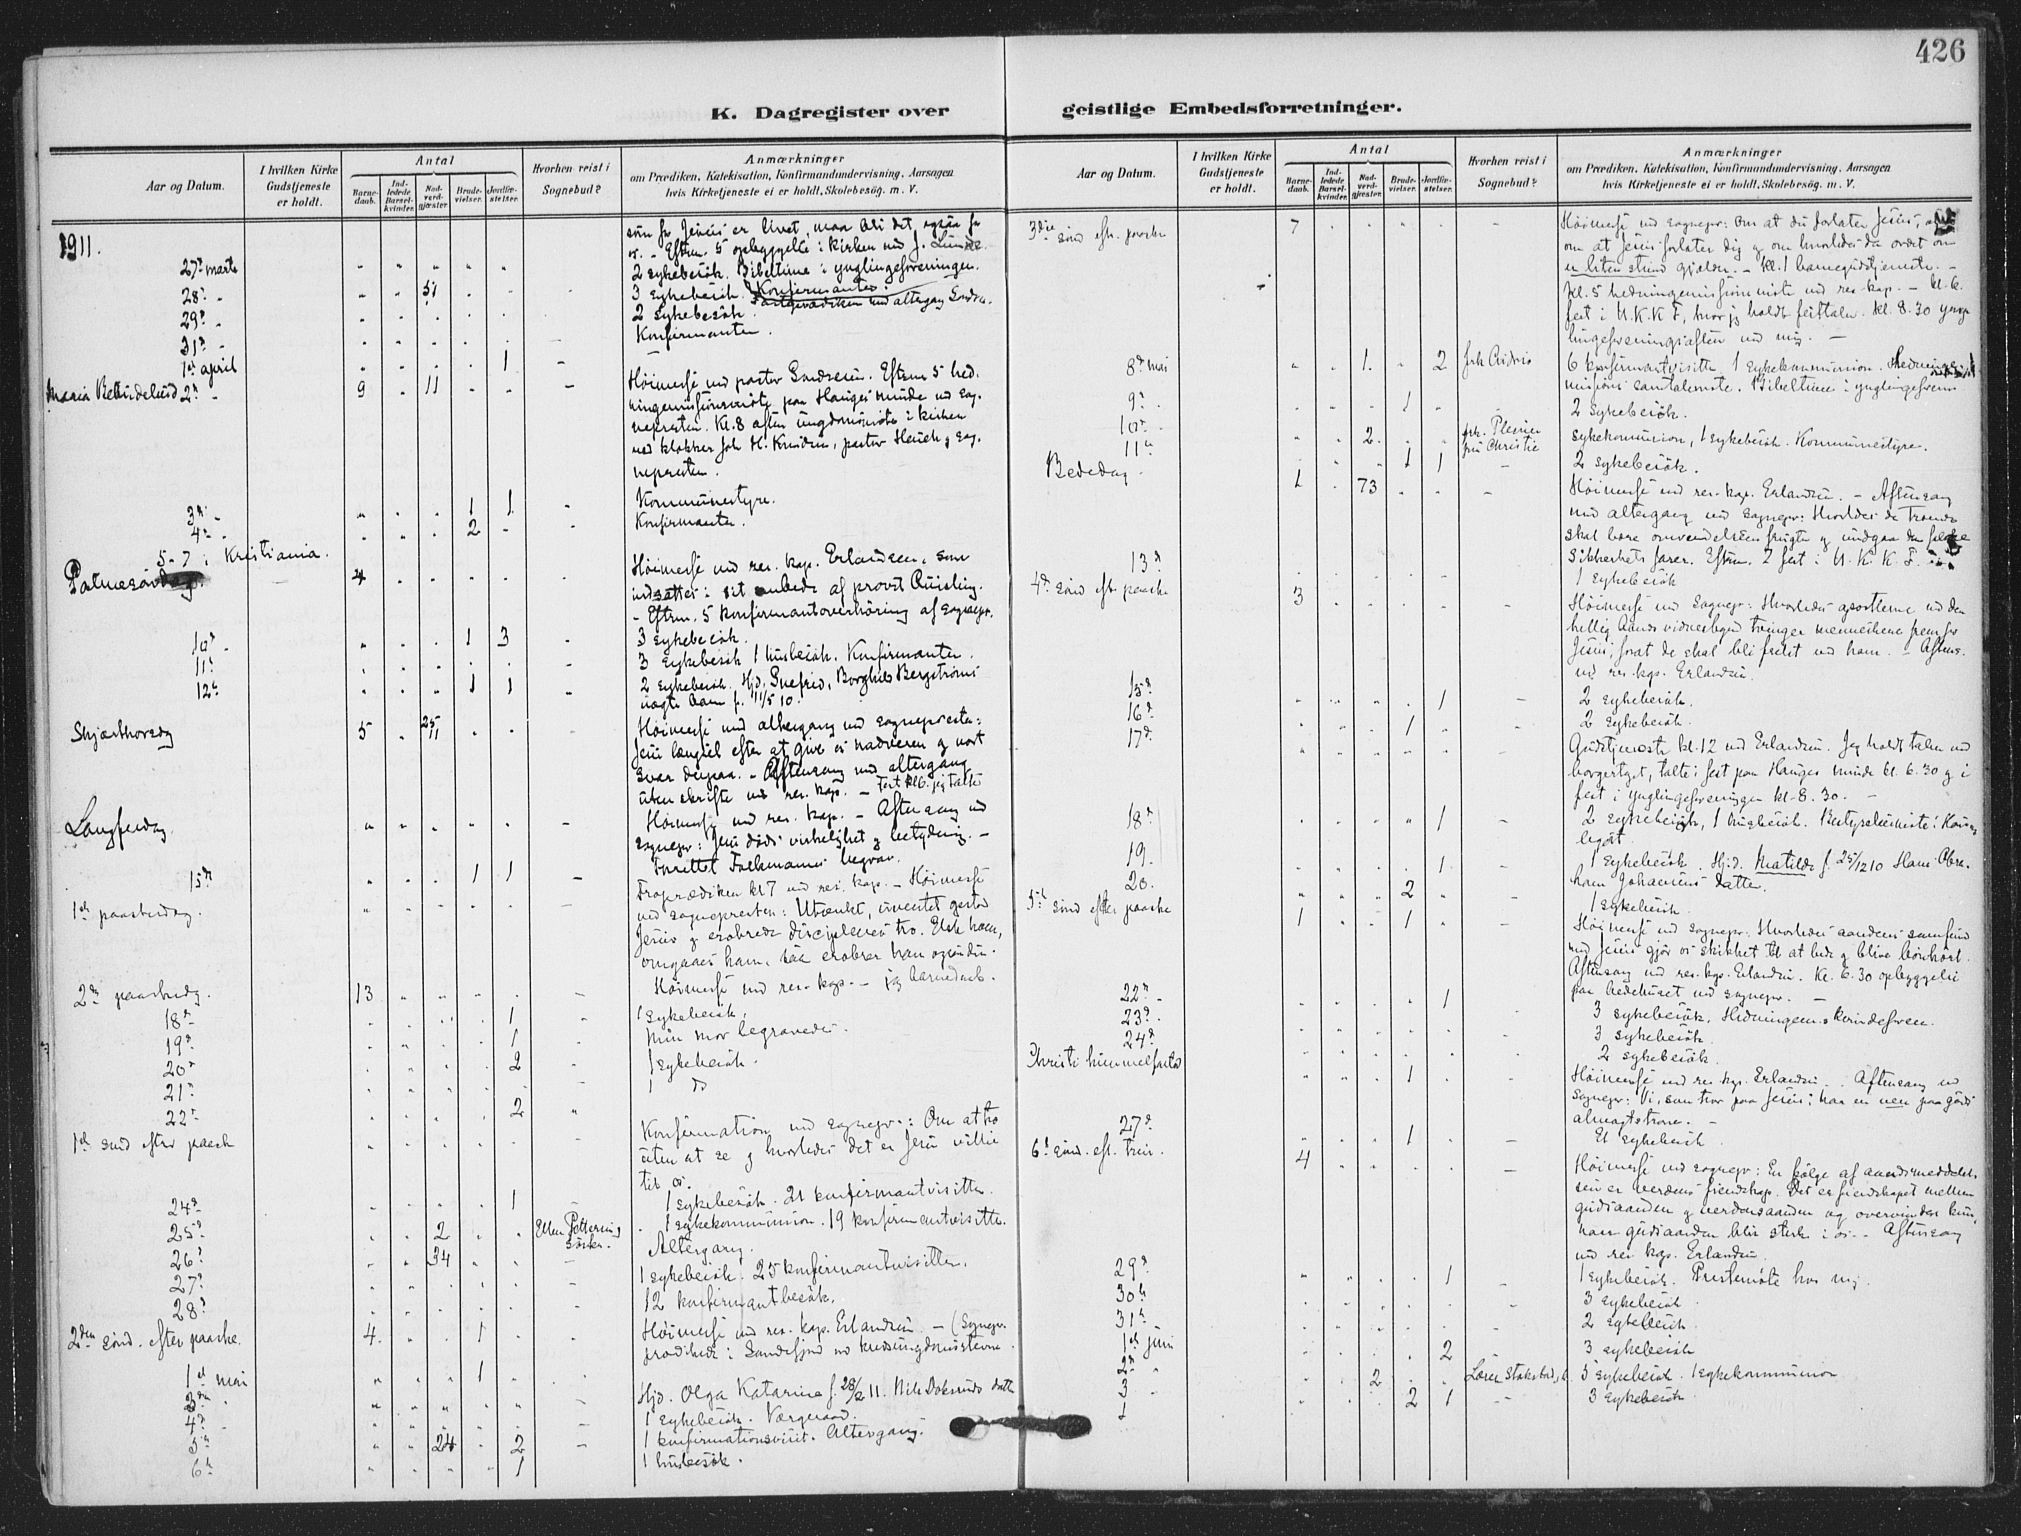 426
K. Dagregister over
geistlige Embedsforretninger.
Aar og Datum.
I hvilken Kirke Gudstjeneste er holdt.
Antal
Barne-daab.
Ind-ledede Barsel-kvinder.
Nad-verd-gjæster.
Brude-vielser.
Jordfæ-stelser.
Hvorhen reist i Sognebud?
Anmærkninger
om Prædiken, Katekisation, Konfirmandundervisning, Aarsagen
hvis Kirketjeneste ei er holdt, Skolebesøg. m. V.
1911.
som for Jesus er livet, maa bli det også for
os. - Efterm. 5 opbyggelse i kirken ved J.
27de marts 2 sykebesøk. Bibeltime i ynglingeforeningen.
28 " 51 3 sykebesøk. Konfirmanter.
29 " 2 sykebesøk.
31 " Konfirmanter.
1st april 1
Maria Bebudelse 2 " 9 11 Høimesse ved pastor . Efterm 5 hed.
ningemissionsmøte paa Hauges minde ved sog.
nepresten. Kl. 8 aften ungdomsmøte i kirken
ved klokker Joh. H. Knudsen, pastor Hauch og sog.
nepresten.
3 " 1 1 Kommunestyre.
4 " 2 Konfirmanter.
5-7 i Kristiania.
Palmesøndag. 4 Høimesse ved res. kap. Erlandsen, som
indsattes i sit embede af provst Quisling.
- Efterm. 5 konfirmantoverhøring af sognepr.
10 " 1 3 3 sykebesøk.
11 3 sykebesøk 1 husbesøk. Konfirmanter.
12 1 1 2 sykebesøk. Hjd. Snefrid, Borghild Bergstrøms
uægte barn f. 11/5 10.
Skjærthorsdag 5 25 11 Høimesse med altergang ved sognepresten:
Jesu længsel efter at give os nadveren og vort
svar derpaa. - Aftensang med altergang
uten skrifte ved res. kap. - Fest kl 6. jeg talte
Langfredag. Høimesse ved res. kap. - Aftensang ved
sognepr: Jesu døds virkelighet og betydning. -
15 1 1
1st paaskedag. Froprædiken kl 7 ved res. kap. - Høimesse
ved sognepresten: Utænkt, uventet gestod
Jesus og erobrede disciplenes tro. Elsk ham,
omgaaes ham, saa erobrer han ogsaa din.
2den paaskedg. 13 Høimesse ved res. kap. - 13 barnedaab.
18 1 1 sykebesøk.
19 1 Min mor begravedes.
20 2 1 sykebesøk.
21 1 Do
22 2
1st sønd efter paaske Konfirmation ved sognepr.: Om at tro
uten at se og hvorledes det er Jesu vilje
til os.
24 1 1 sykebesøk. 21 konfirmantvisitter.
25 2 Ellen 1 sykekommunion. 19 konfirmantvisitte.
26 34 Altergang.
27 1 sykebesøk. 25 konfirmantvisitter.
28 12 konfirmantbesøk.
2den sønd. efter paaske. 4. 1 Høimesse ved res. kap. Erlandsen. - (Sognepr.
prædiket i Sandefjord ved kredsungdomsstevne.
1st mai 1 Hjd. Olga Katarina f. 28/2 11. Nils datter
3die 1 sykebesøk. Vergeraad.
4 1 konfirmationsvisit. Altergang.
5 24 2 1 husbesøk.
6 1
Aar og Datum.
I hvilken Kirke Gudstjeneste er holdt.
Antal
Barne-daab.
Ind-ledede Barsel-kvinder.
Nad-verd-gjæster.
Brude-vielser.
Jordfæ-stelser.
Hvorhen reist i Sognebud?
Anmærkninger
om Prædiken, Katekisation, Konfirmandundervisning, Aarsagen
hvis Kirketjeneste ei er holdt, Skolebesøg. m. V.
3die sønd eft. paaske 7 Høimesse ved sognepr: Om at du forlater Jesus,
om at Jesus forlater dig og om hvorledes da ordet om
en liten stund gjælder. - kl. 1 barnegudstjeneste. -
kl. 5 hedningemissionsmøte ved res. kap. - kl. 6.
fest i U.K.K.F, hvor jeg holdt festtalen. kl. 8.30 yng-
lingeforeningsaften ved mig. -
8de mai 1 2 6 konfirmantvisitter 1 sykekommunion. Hedninge-
missions samtalemøte. Bibeltime i ynglingeforen.
9 1 2 sykebesøk.
10 2 frk. Plesner fru Christie sykekommunion, 1 sykebesøk. Kommunestyre.
11 1 1 2 sykebesøk.
Bededag 1 73 Høimesse ved res. kap. Erlandsen. - Aftensang
med altergang ved sognepr: Hvorledes de troende
skal bære omvendelsens frugter og undgaa den falske
sikkerhets farer. Efterm. 7 fest i U.K.K.F.
13 1 sykebesøk
4de sønd eft. paaske 3 Høimesse ved sognepr: Hvorledes apostlerne ved den
hellig Aands vidnesbyrd tvinger menneskene frem for
Jesus, forat de skal bli frelst ved ham. - Aftens.
ved res. kap. Erlandsen.
15 1 2 sykebesøk.
16 1 2 sykebesøk.
17 Gudstjeneste kl. 12 ved Erlandsen. Jeg holdt talen ved
borgertoget, talte i fest paa Hauges minde kl. 6.30 og i
fest i ynglingeforeningen kl. 8.30. -
18 1 2 sykebesøk, 1 husbesøk. Bestyrelsesmøte i
19 1 1 sykebesøk. Hjd. Matilde f. 25/12 10 Hans Abra-
ham Johansens datter.
20. 2 1 sykebesøk.
5te sønd efter paaske 1 1 Høimesse ved sognepr: Hvorledes aandens samfund
med Jesus gjør os skikket til at bede og blive bønhørt.
Aftensang ved res. kap. Erlandsen. Kl. 6.30 opbyggelse
paa bedehuset ved sognepr. -
22 1 3 sykebesøk. Hedningem.s kvindeforen.
23 3 sykebesøk.
24 2 sykebesøk.
Christi himmelfartsd 1 Høimesse ved res. kap. Erlandsen. Aftensang ved
sognepr: Vi, som tror paa Jesus, har en ven paa Guds
almagtstrone. -
27 1 Et sykebesøk
6te sønd. eft. 4 Høimesse ved sognepr: En følge af aandsmeddelel-
sen er verdens fiendskap. Det er fiendskapet mellem
gudsaanden og verdensaanden og overvindes kun,
naar gudsaanden blir sterk i os. - Aftensang
ved res. kap. Erlandsen.
29 1 1 sykebesøk. Prestemøte hos mig.
30 3 sykebesøk
31 2 sykebesøk
1st juni 2 3 sykebesøk
2 " 2 Lærer 5 sykebesøk. 1 sykekommunion
3 2 1 3 sykebesøk